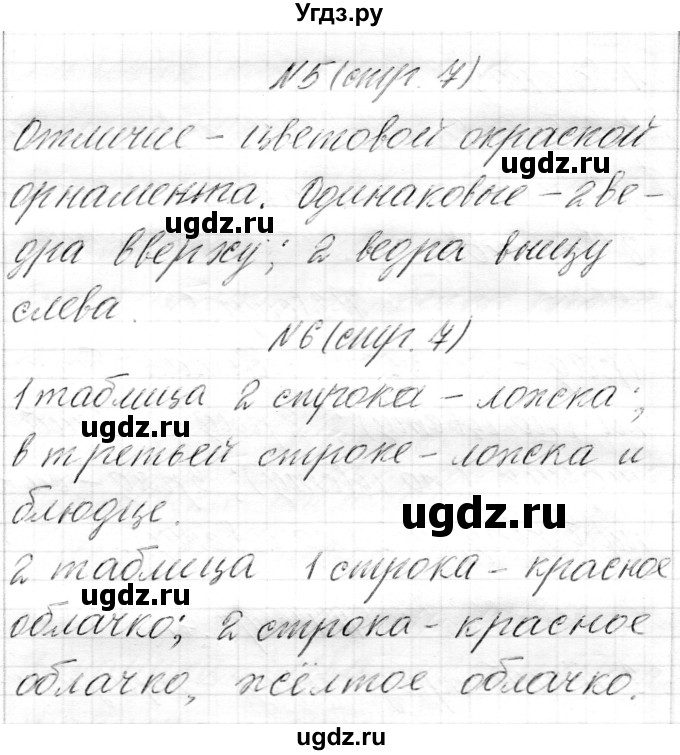 Угдз.ру
N5 (стр. 7)
Отличие - цветовой окраской
ugdz.ru
орнамента. Одинаковые - 2 ве-
ugdz.ru
дра вверху; 2 ведра внизу
слева.
N6 (стр. 7)
1 таблица 2 строка - ложка;
ugdz.ru
в третьей строке - ложка и
блюдце.
ugdz.ru
2 таблица 1 строка - красное
ugdz.ru
облачко; 2 строка - красное
облачко, жёлтое облачко.
ugdz.ru